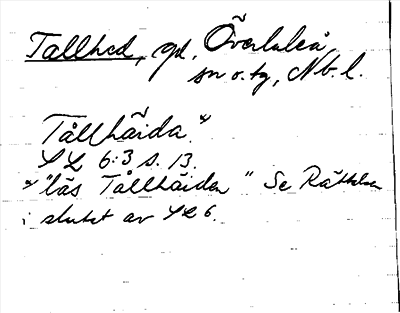 Tallhed, gd, Överluleå
sn o. tg, Nb. l.
Tållhăida *
SL 6:3 s. 13.
* "läs Tållhăiden" Se Rättelser
i slutet av SL 6.